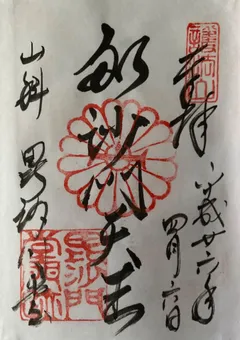 奉拝
平成廿六年
四月六日
毘沙門天王
山科 毘沙門堂
毘沙門
堂